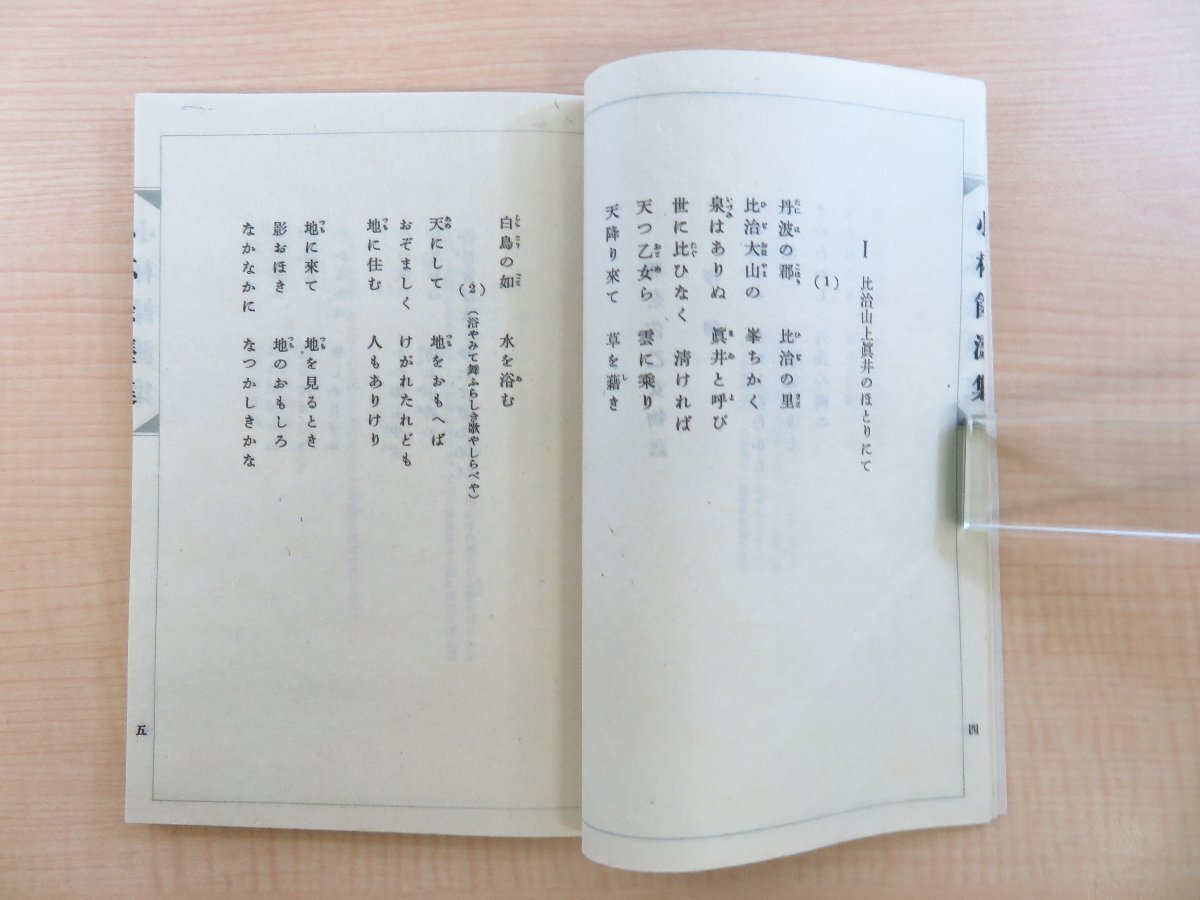 I 比治山上眞井のほとりにて
(1)
丹波の郡 比治の里
比治大山の 峯ちかく
泉はありぬ 眞井と呼び
世に比ひなく 淸ければ
天つ乙女ら 雲に乘り
天降り來て 草を藉き
四
白鳥の如 水を浴む
(2) (浴やみて舞ふらしき歌やしらべや)
天にして 地をおもへば
おぞましく けがれたれども
地に住む 人もありけり
地に來て 地を見るとき
影おほき 地のおもしろ
なかなかに なつかしきかな
五